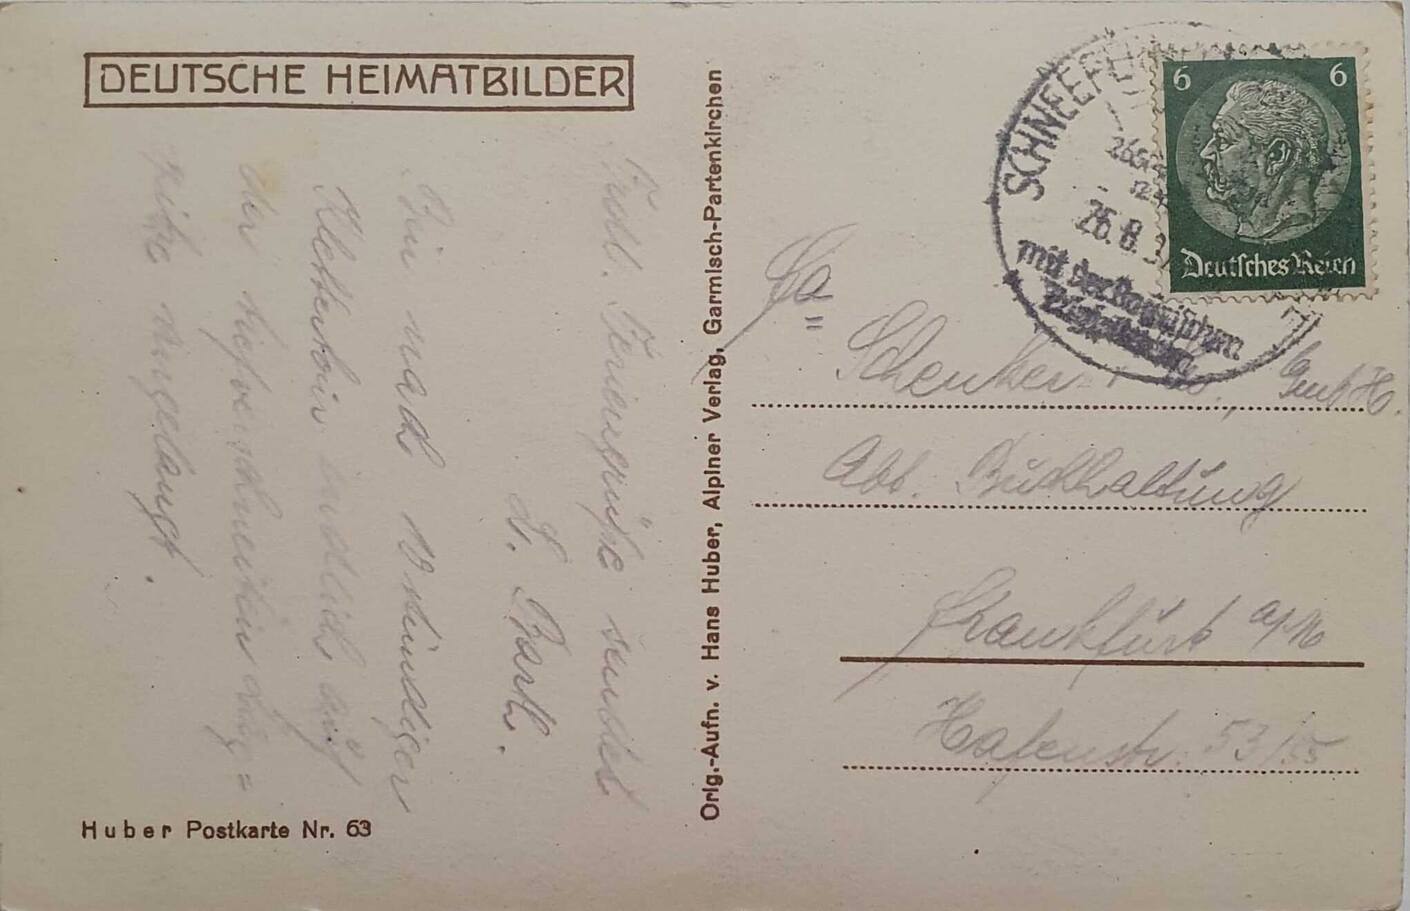 DEUTSCHE HEIMATBILDER
Frdl. Feriengrüße sendet
L. Barth.
Bin nach 10 stündiger
Klettertour endlich auf
der tiefverschneiten Zug=
spitze angelangt.
Huber Postkarte Nr. 63
Orig.-Aufn. v. Hans Huber, Alpiner Verlag, Garmisch-Partenkirchen
SCHNEEFERNER
2650
26.8.37
mit der Bayrischen
Zugspitzbahn
6 6
Deutsches Reich
Fa
Schenker + Co., GmbH.
Abt. Buchhaltung
Frankfurt a/M
Hafenstr. 53/55